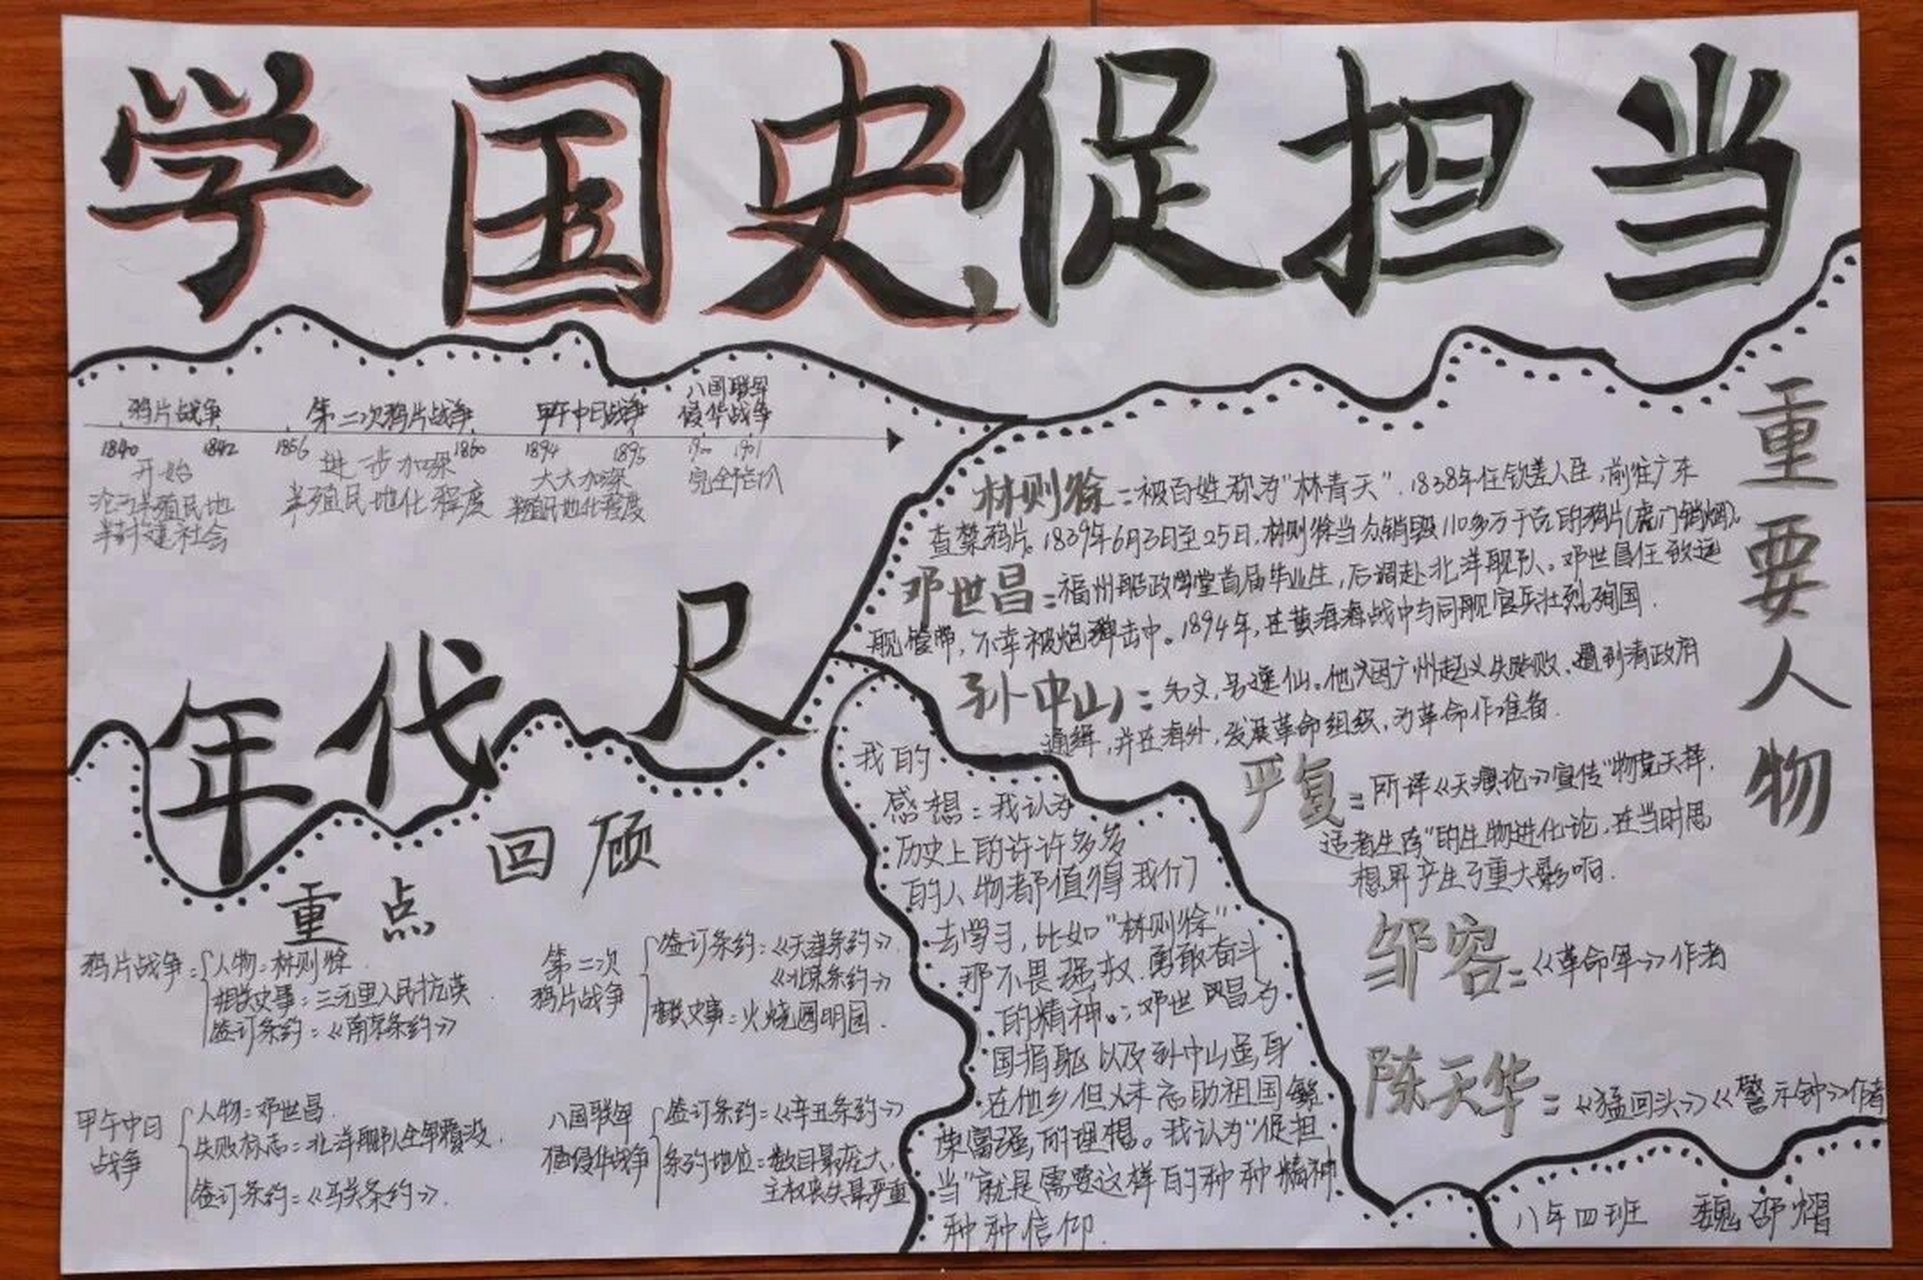 学国史,促担当
鸦片战争
1840 1842
开始
沦为半殖民地
半封建社会
第二次鸦片战争
1856 1860
进一步加深
半殖民地化程度
甲午中日战争
1894 1895
大大加深
半殖民地化程度
八国联军
侵华战争
1900 1901
完全陷入
年代尺
重要人物
林则徐:被百姓称为“林青天”.1838年任钦差大臣,前往广东
查禁鸦片。1839年6月3日至25日,林则徐当众销毁110多万千克的鸦片(虎门销烟)。
邓世昌:福州船政学堂首届毕业生,后调赴北洋舰队。邓世昌任致远
舰管带,不幸被炮弹击中。1894年,在黄海海战中与同舰官兵壮烈殉国.
孙中山:名文,号逸仙。他因广州起义失败,遭到清政府
通缉,并在海外,发展革命组织,为革命作准备.
严复:所译《天演论》宣传“物竞天择,
适者生存”的生物进化论,在当时思
想界产生了重大影响.
邹容:《革命军》作者
陈天华:《猛回头》《警示钟》作者
重点回顾
鸦片战争:人物:林则徐.
相关史事:三元里人民抗英
签订条约:《南京条约》
第二次
鸦片战争
签订条约:《天津条约》
《北京条约》
相关史事:火烧圆明园.
甲午中日
战争
人物:邓世昌.
失败标志:北洋舰队全军覆没.
签订条约:《马关条约》.
八国联军
侵华战争
签订条约:《辛丑条约》
条约地位:数目最庞大,
主权丧失最严重
我的
感想:我认为
历史上的许许多多
的人物都值得我们
去学习,比如“林则徐”
那不畏强权.勇敢奋斗
的精神。;邓世昌为
国捐躯以及孙中山虽身
在他乡但从未忘助祖国繁
荣富强,的理想。我认为“促担
当”就是需要这样的种种精神
种种信仰.
八年四班 魏邵熠